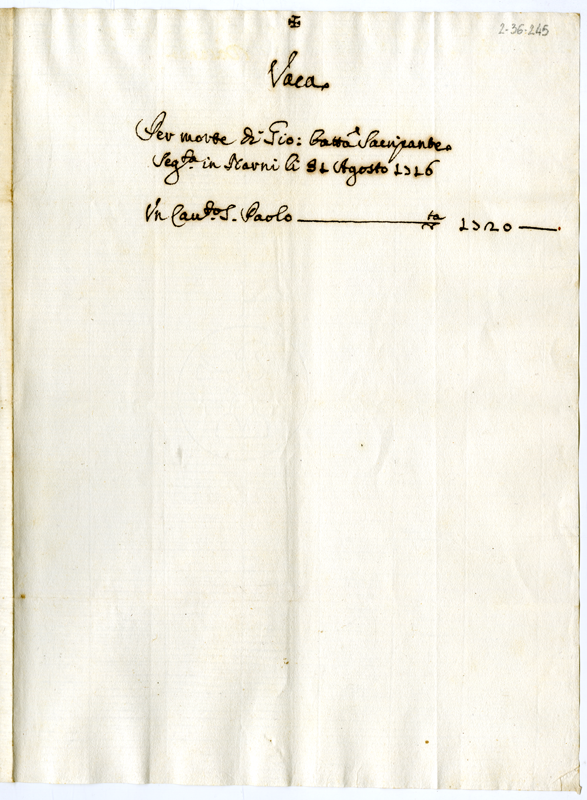 ✠
2-36-245
Vaca
Per morte di Gio: Batta Sacripante
Seg.ta in Narni li 31 Agosto 1716
Un Cau.to S. Paolo ta 1720